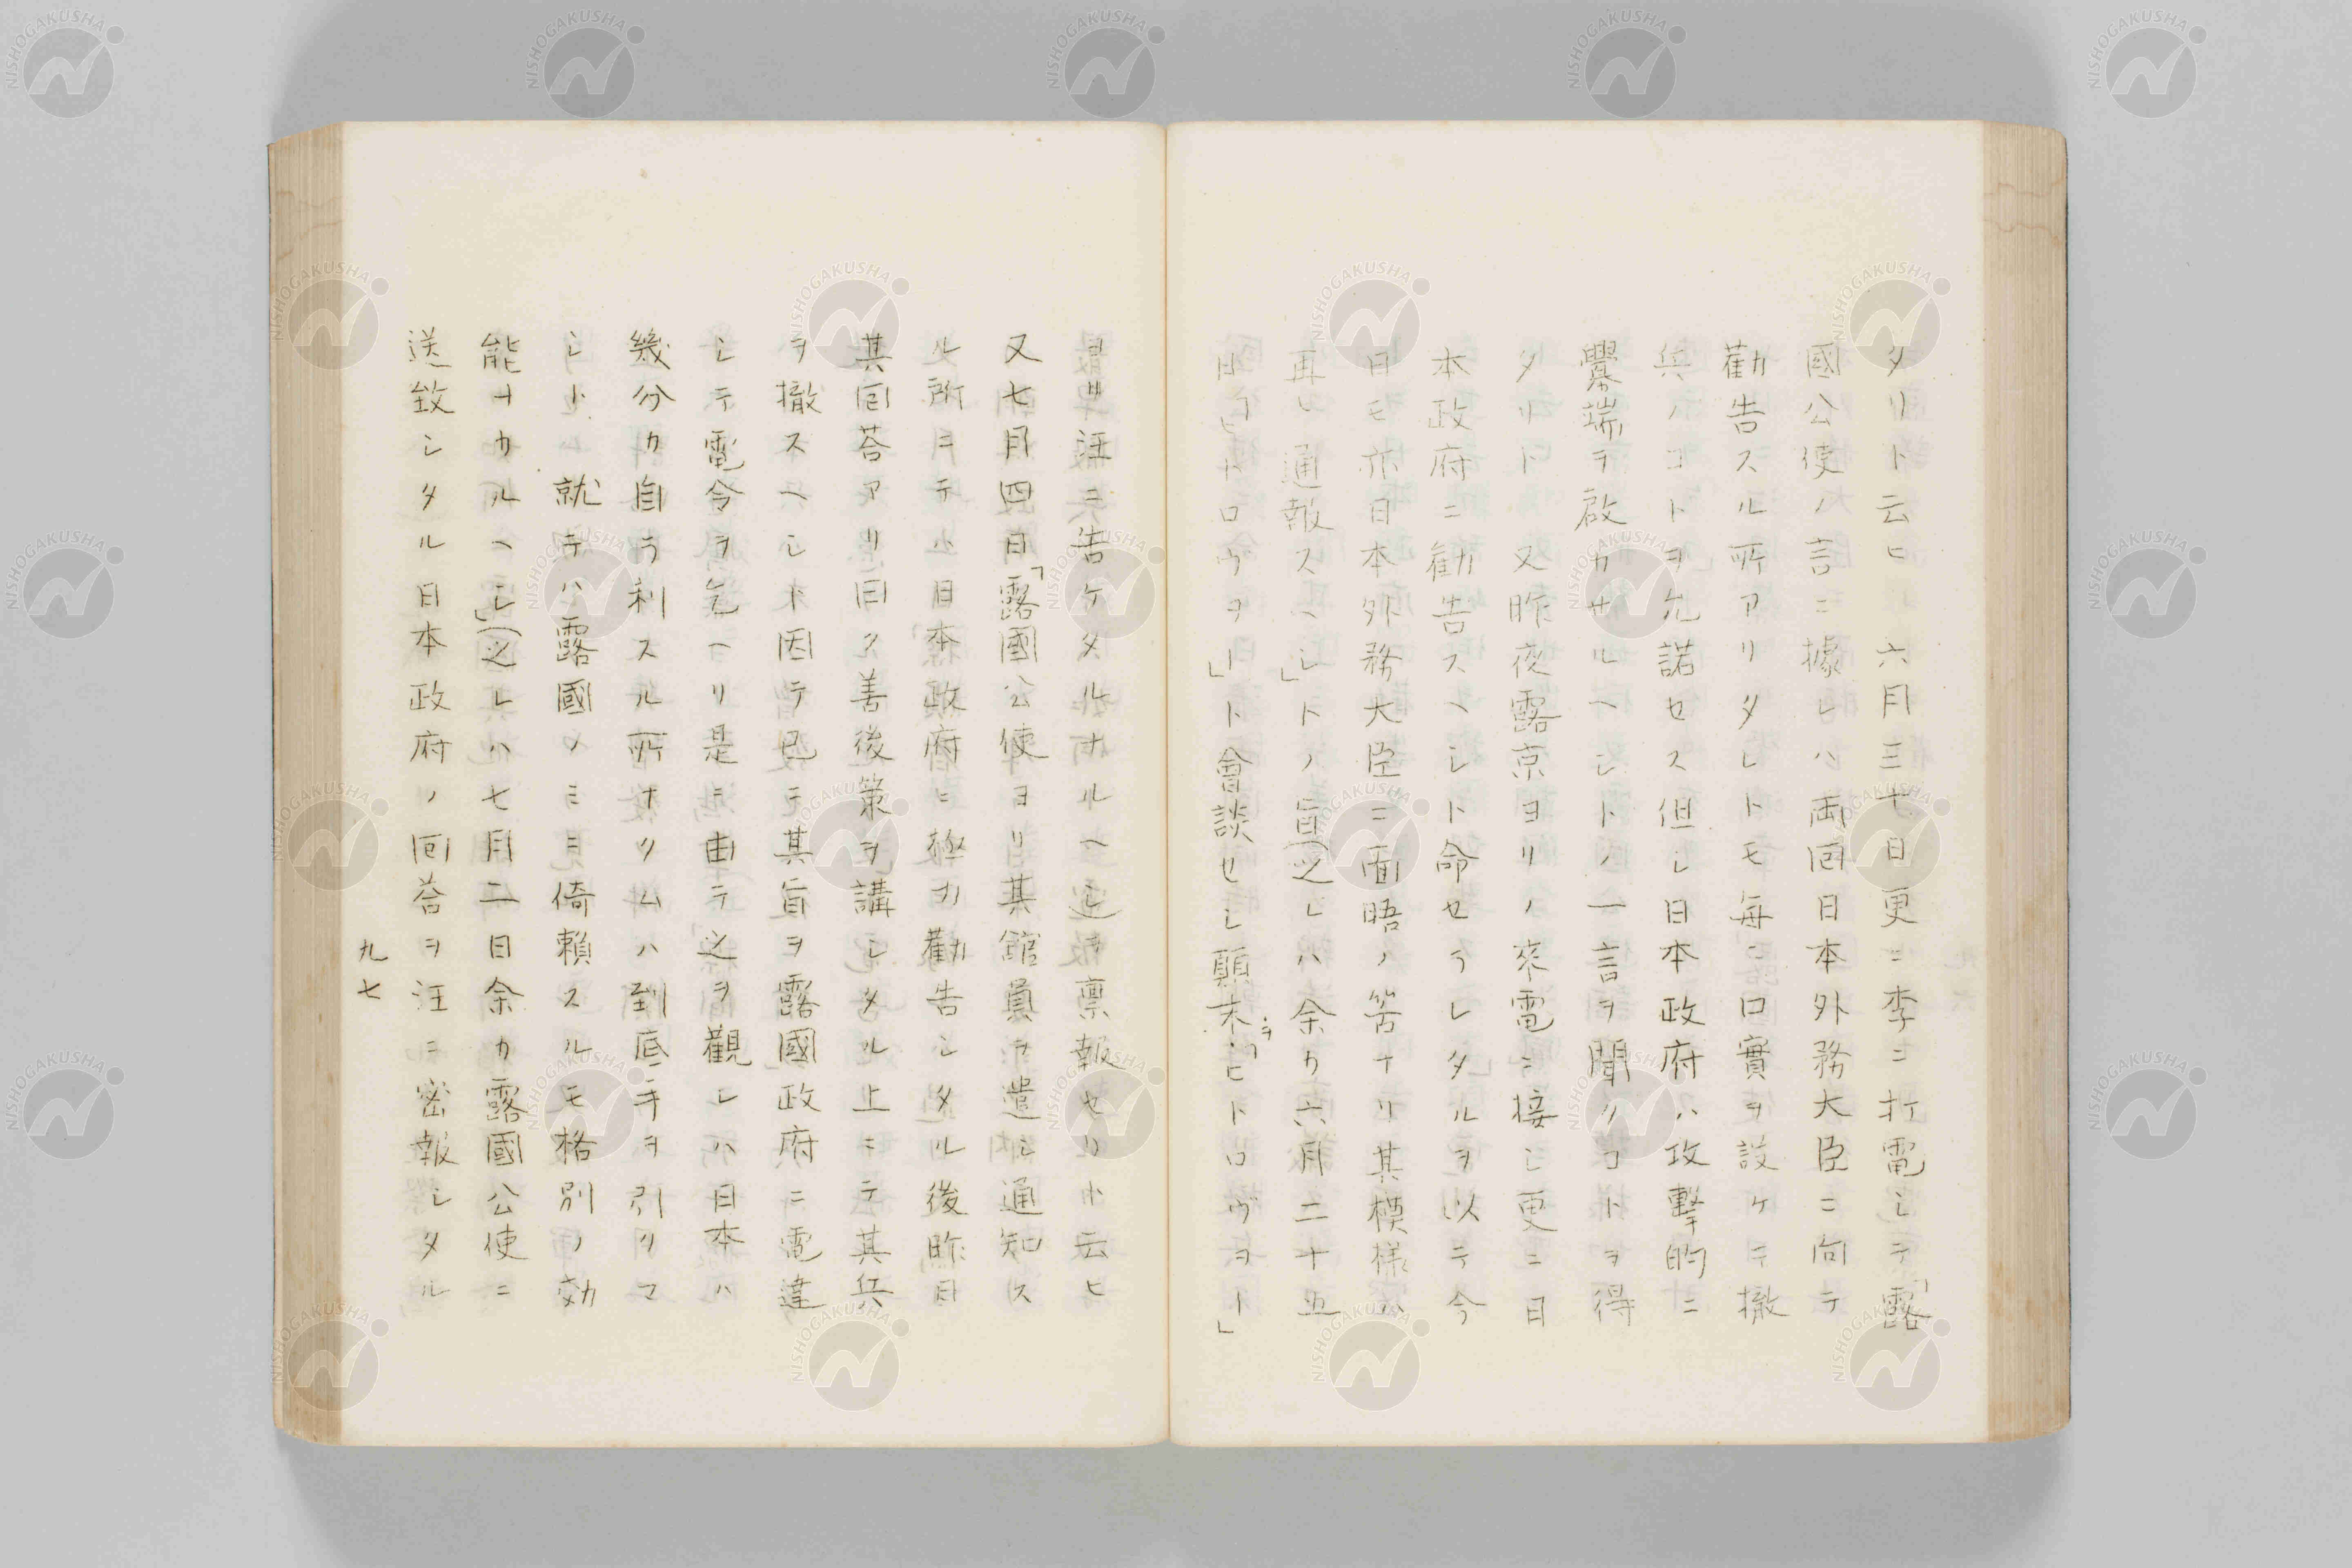 タリト云ヒ、六月三十日更ニ李ニ打電シテ「露
國公使ノ言ニ據レハ両囘日本外務大臣ニ向テ
勸告スル所アリタレトモ毎ニ口實ヲ設ケテ撤
兵ノコトヲ允諾セス但シ日本政府ハ攻擊的ニ
釁端ヲ啟カサルヘシトノ一言ヲ聞クコトヲ得
タリト 又昨夜露京ヨリノ來電ニ接シ更ニ日
本政府ニ勸告スヘシト命セラレタルヲ以テ今
日モ亦日本外務大臣ニ面晤ノ筈ナリ其模様ハ
再ヒ通報スヘシ」トノ旨(之レハ余カ六月二十五
日「ヒトロヴヲー」ト會談セシ顛末ヲ「ヒトロヴヲー」
ヨリ汪ニ告ケタルナルヘシ)ヲ稟報セリト云ヒ
又七月四日「露國公使ヨリ其館員ヲ遣シ通知ス
ル所ニテハ日本政府ニ極力勸告シタル後昨日
其囘荅アリ曰ク善後策ヲ講シタル上ニテ其兵
ヲ撤スヘシト因テ已ニ其旨ヲ露國政府ニ電達
シテ電令ヲ乞ヘリ是ニ由テ之ヲ觀レハ日本ハ
幾分カ自ラ利スル所ナクムハ到底手ヲ引クマ
シト 就テハ露國ノミニ倚賴スルモ格別ノ効
能ナカルヘシ」(之レハ七月二日余カ露國公使ニ
送致シタル日本政府ノ囘荅ヲ汪ニ密報シタル
九七
NISHOGAKUSHA